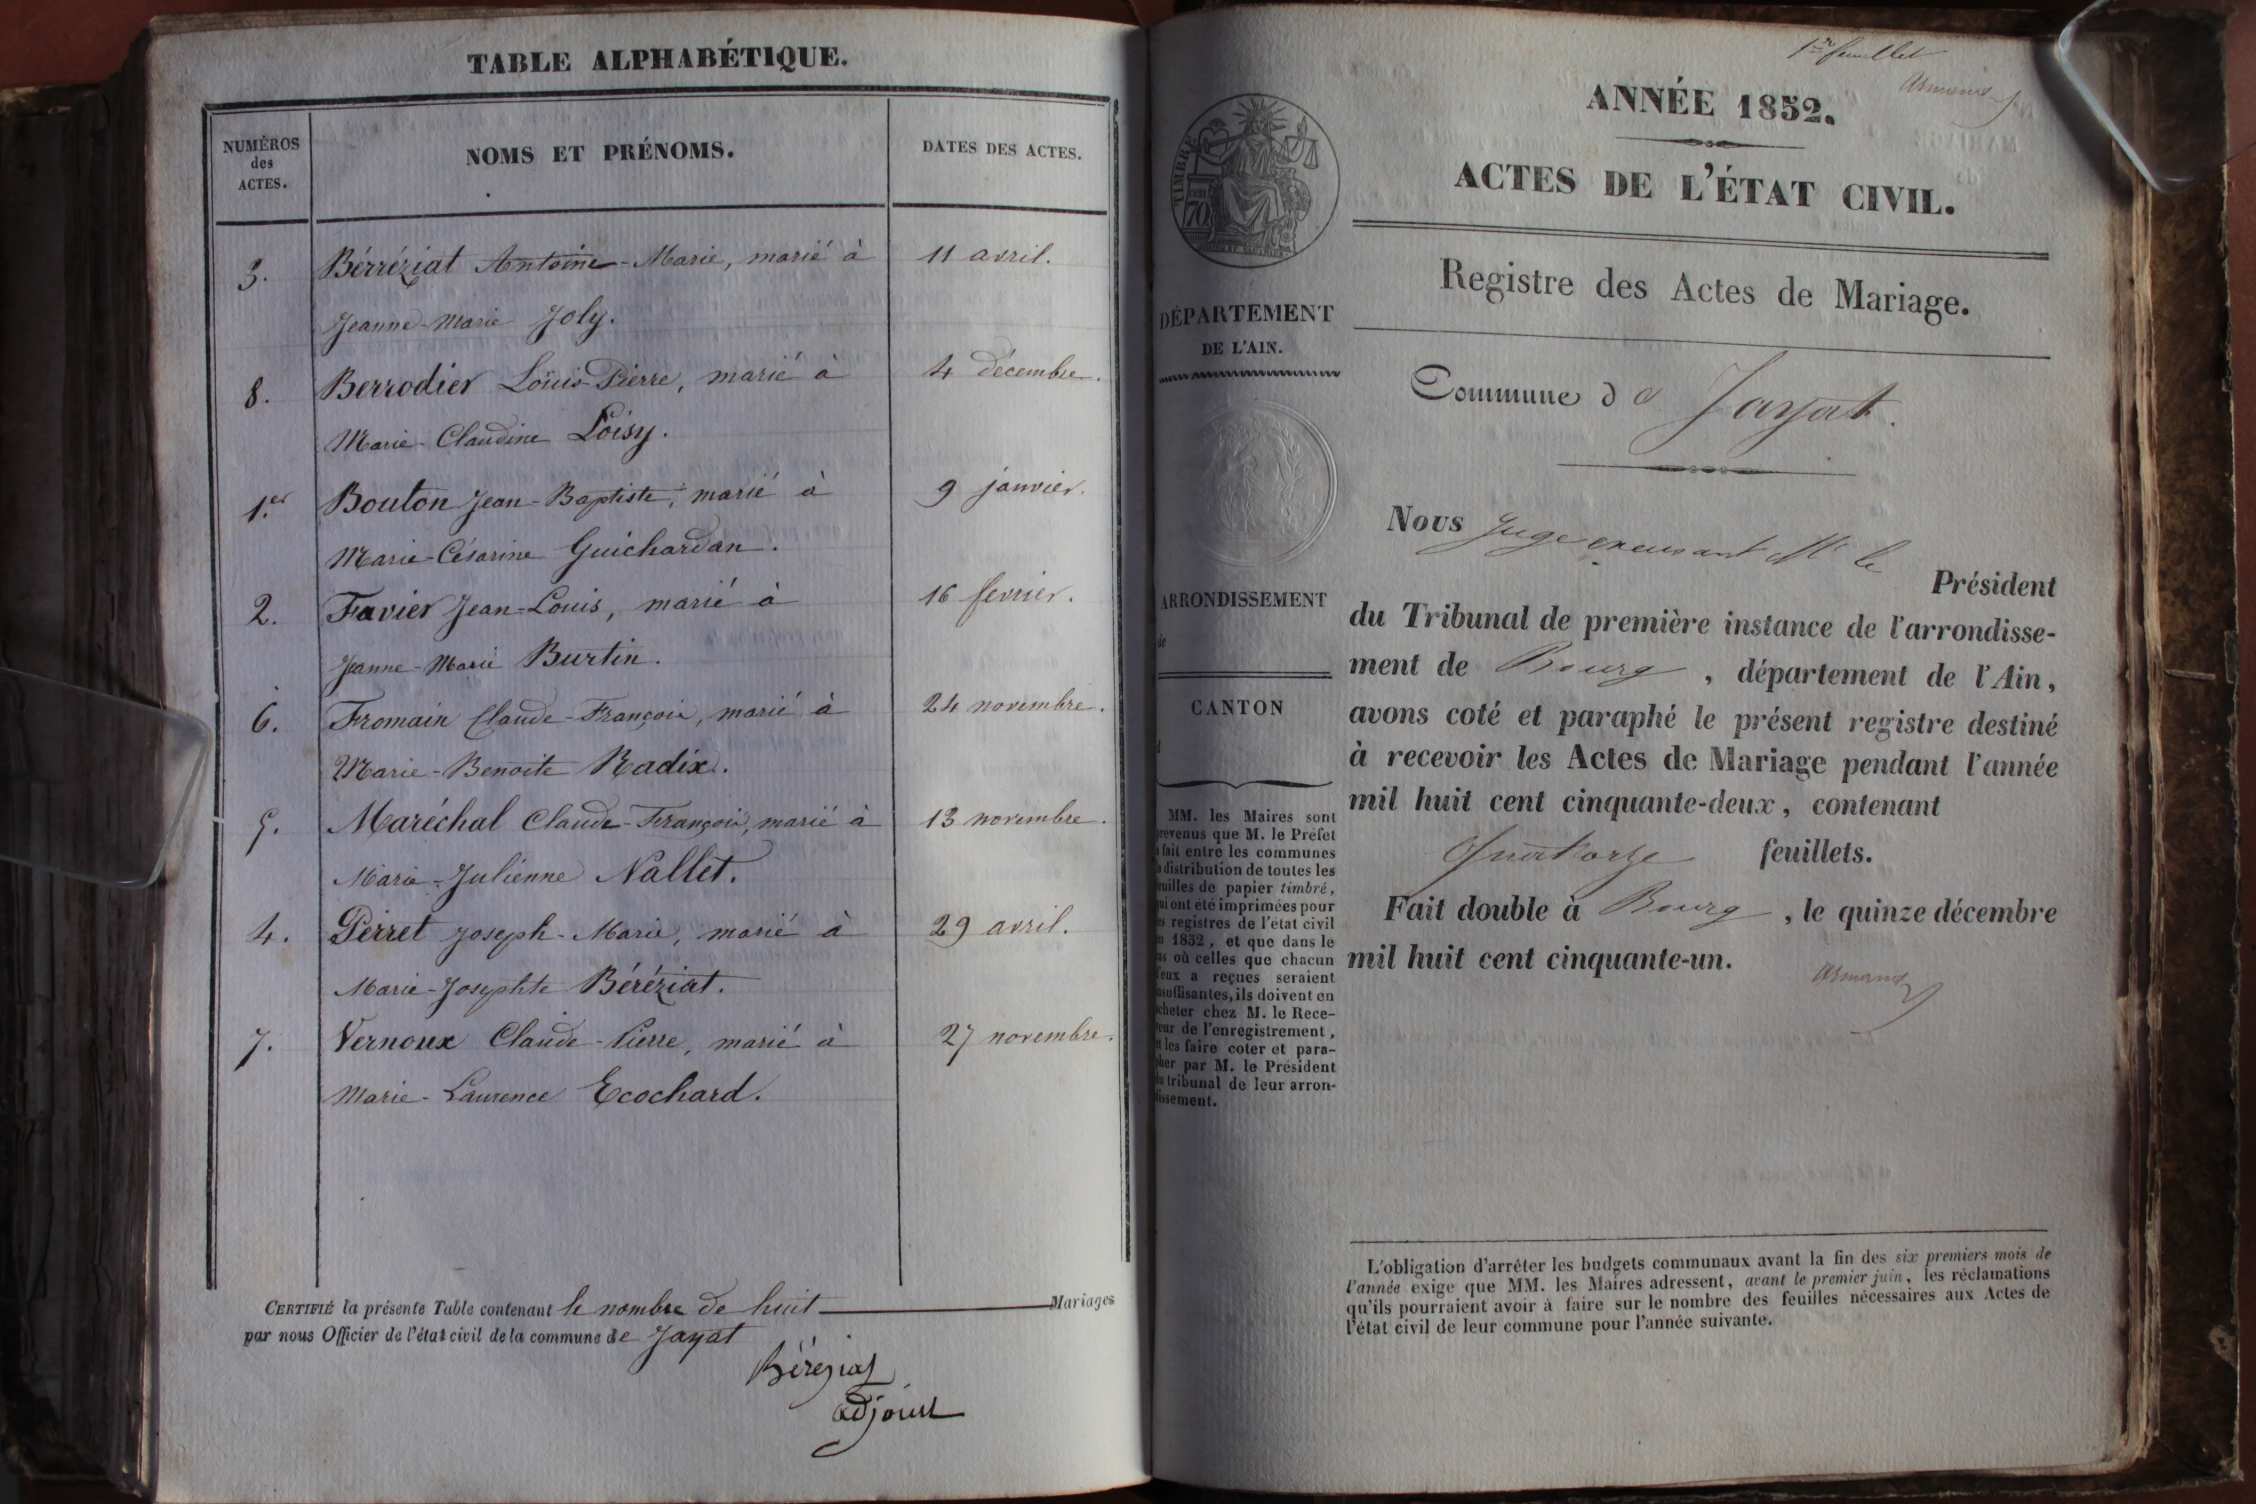 TABLE ALPHABÉTIQUE.
NUMÉROS
des
ACTES.
NOMS ET PRÉNOMS.
DATES DES ACTES.
3. Bérréziat Antoine-Marie, marié à 11 avril.
Jeanne-Marie Joly.
8. Berrodier Louis-Pierre, marié à 4 décembre.
Marie-Claudine Loisy.
1.er Bouton Jean-Baptiste, marié à 9 janvier.
Marie-Césarine Guichardan.
2. Favier Jean-Louis, marié à 16 fevrier.
Jeanne-Marie Burtin.
6. Fromain Claude-François, marié à 24 novembre.
Marie-Benoite Radix.
5. Maréchal Claude-François, marié à 13 novembre.
Marie-Julienne Nallet.
4. Perret Joseph-Marie, marié à 29 avril.
Marie-Josephte Béréziat.
7. Vernoux Claude-Pierre, marié à 27 novembre.
Marie-Laurence Ecochard.
CERTIFIÉ la présente Table contenant le nombre de huit Mariages
par nous Officier de l'état civil de la commune de Jayat
Béréziat
adjoint
1er feuillet
Armand
ANNÉE 1852.
ACTES DE L'ÉTAT CIVIL.
Registre des Actes de Mariage.
Commune de Jayat.
TIMBRE
70
DÉPARTEMENT
DE L'AIN.
ARRONDISSEMENT
de
CANTON
MM. les Maires sont
prévenus que M. le Préfet
a fait entre les communes
la distribution de toutes les
feuilles de papier timbré,
qui ont été imprimées pour
les registres de l'état civil
en 1852, et que dans le
cas où celles que chacun
d'eux a reçues seraient
insuffisantes, ils doivent en
acheter chez M. le Rece-
veur de l'enregistrement,
et les faire coter et para-
pher par M. le Président
du tribunal de leur arron-
dissement.
Nous Juge excusant Mr le
Président
du Tribunal de première instance de l'arrondisse-
ment de Bourg, département de l'Ain,
avons coté et paraphé le présent registre destiné
à recevoir les Actes de Mariage pendant l'année
mil huit cent cinquante-deux, contenant
Quatorze feuillets.
Fait double à Bourg, le quinze décembre
mil huit cent cinquante-un.
Armand
L'obligation d'arrêter les budgets communaux avant la fin des six premiers mois de
l'année exige que MM. les Maires adressent, avant le premier juin, les réclamations
qu'ils pourraient avoir à faire sur le nombre des feuilles nécessaires aux Actes de
l'état civil de leur commune pour l'année suivante.